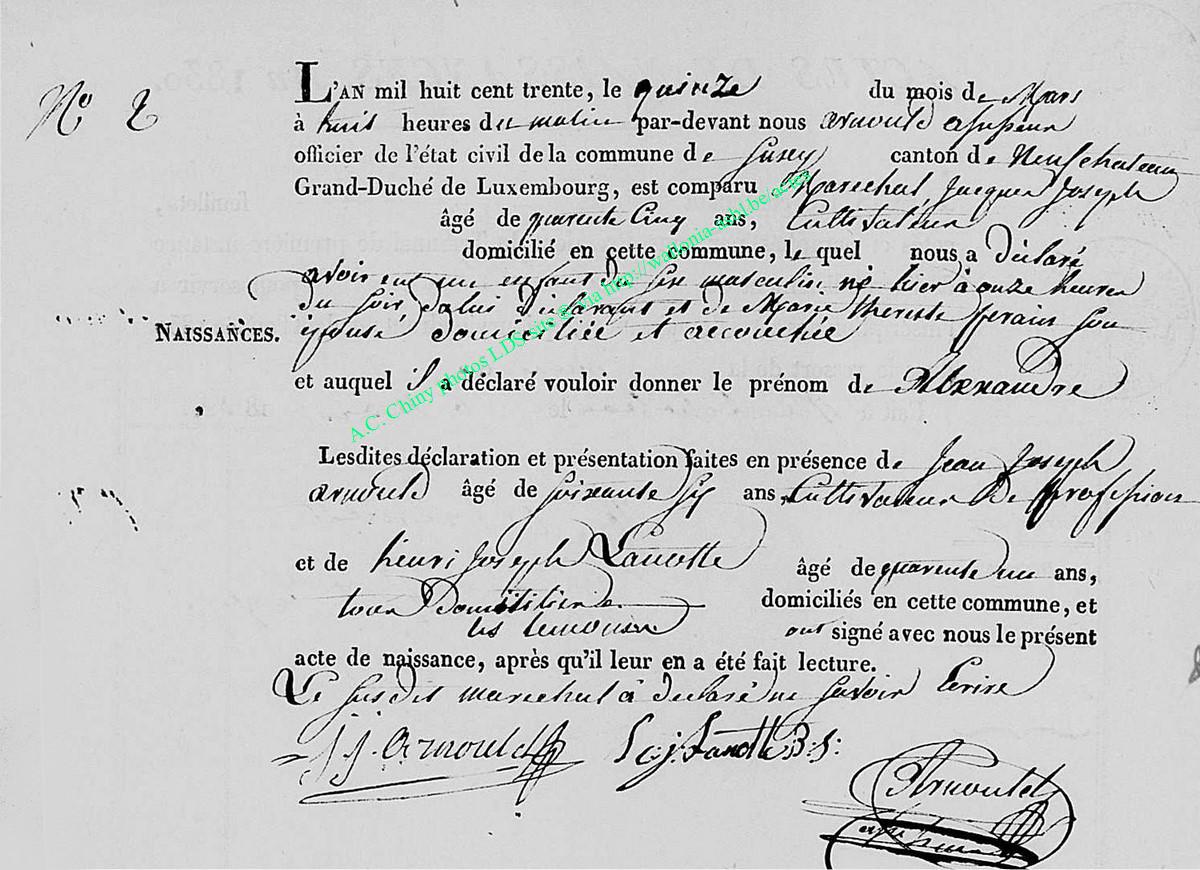 N° 2
L'AN mil huit cent trente, le quinze du mois de Mars
à huit heures du matin par-devant nous arnould assesseur
officier de l'état civil de la commune de Susey canton de Neufchateau
Grand-Duché de Luxembourg, est comparu Marechal, Jacques Joseph
âgé de quarente Cinq ans, Cultivateur
domicilié en cette commune, le quel nous a déclaré
avoir eut un enfant du sexe masculin né hier à onze heures
du soir, de lui déclarant et de Marie therese son
NAISSANCES.
épouse domiciliée et accouchée
et auquel il a déclaré vouloir donner le prénom de Alexandre
Lesdites déclaration et présentation faites en présence de Jean Joseph
arnould âgé de soixante six ans, Cultivateur de profession
et de henri Joseph Lanotte âgé de quarente un ans,
tous domiciliés en cette commune, et
les temoins ont signé avec nous le présent
acte de naissance, après qu'il leur en a été fait lecture.
Le susdit marechal à declaré ne savoir Ecrire
J. j. Arnould
Arnould
A.C. Chiny photos LDS site @ via http://wallonia-asbl.be/actes